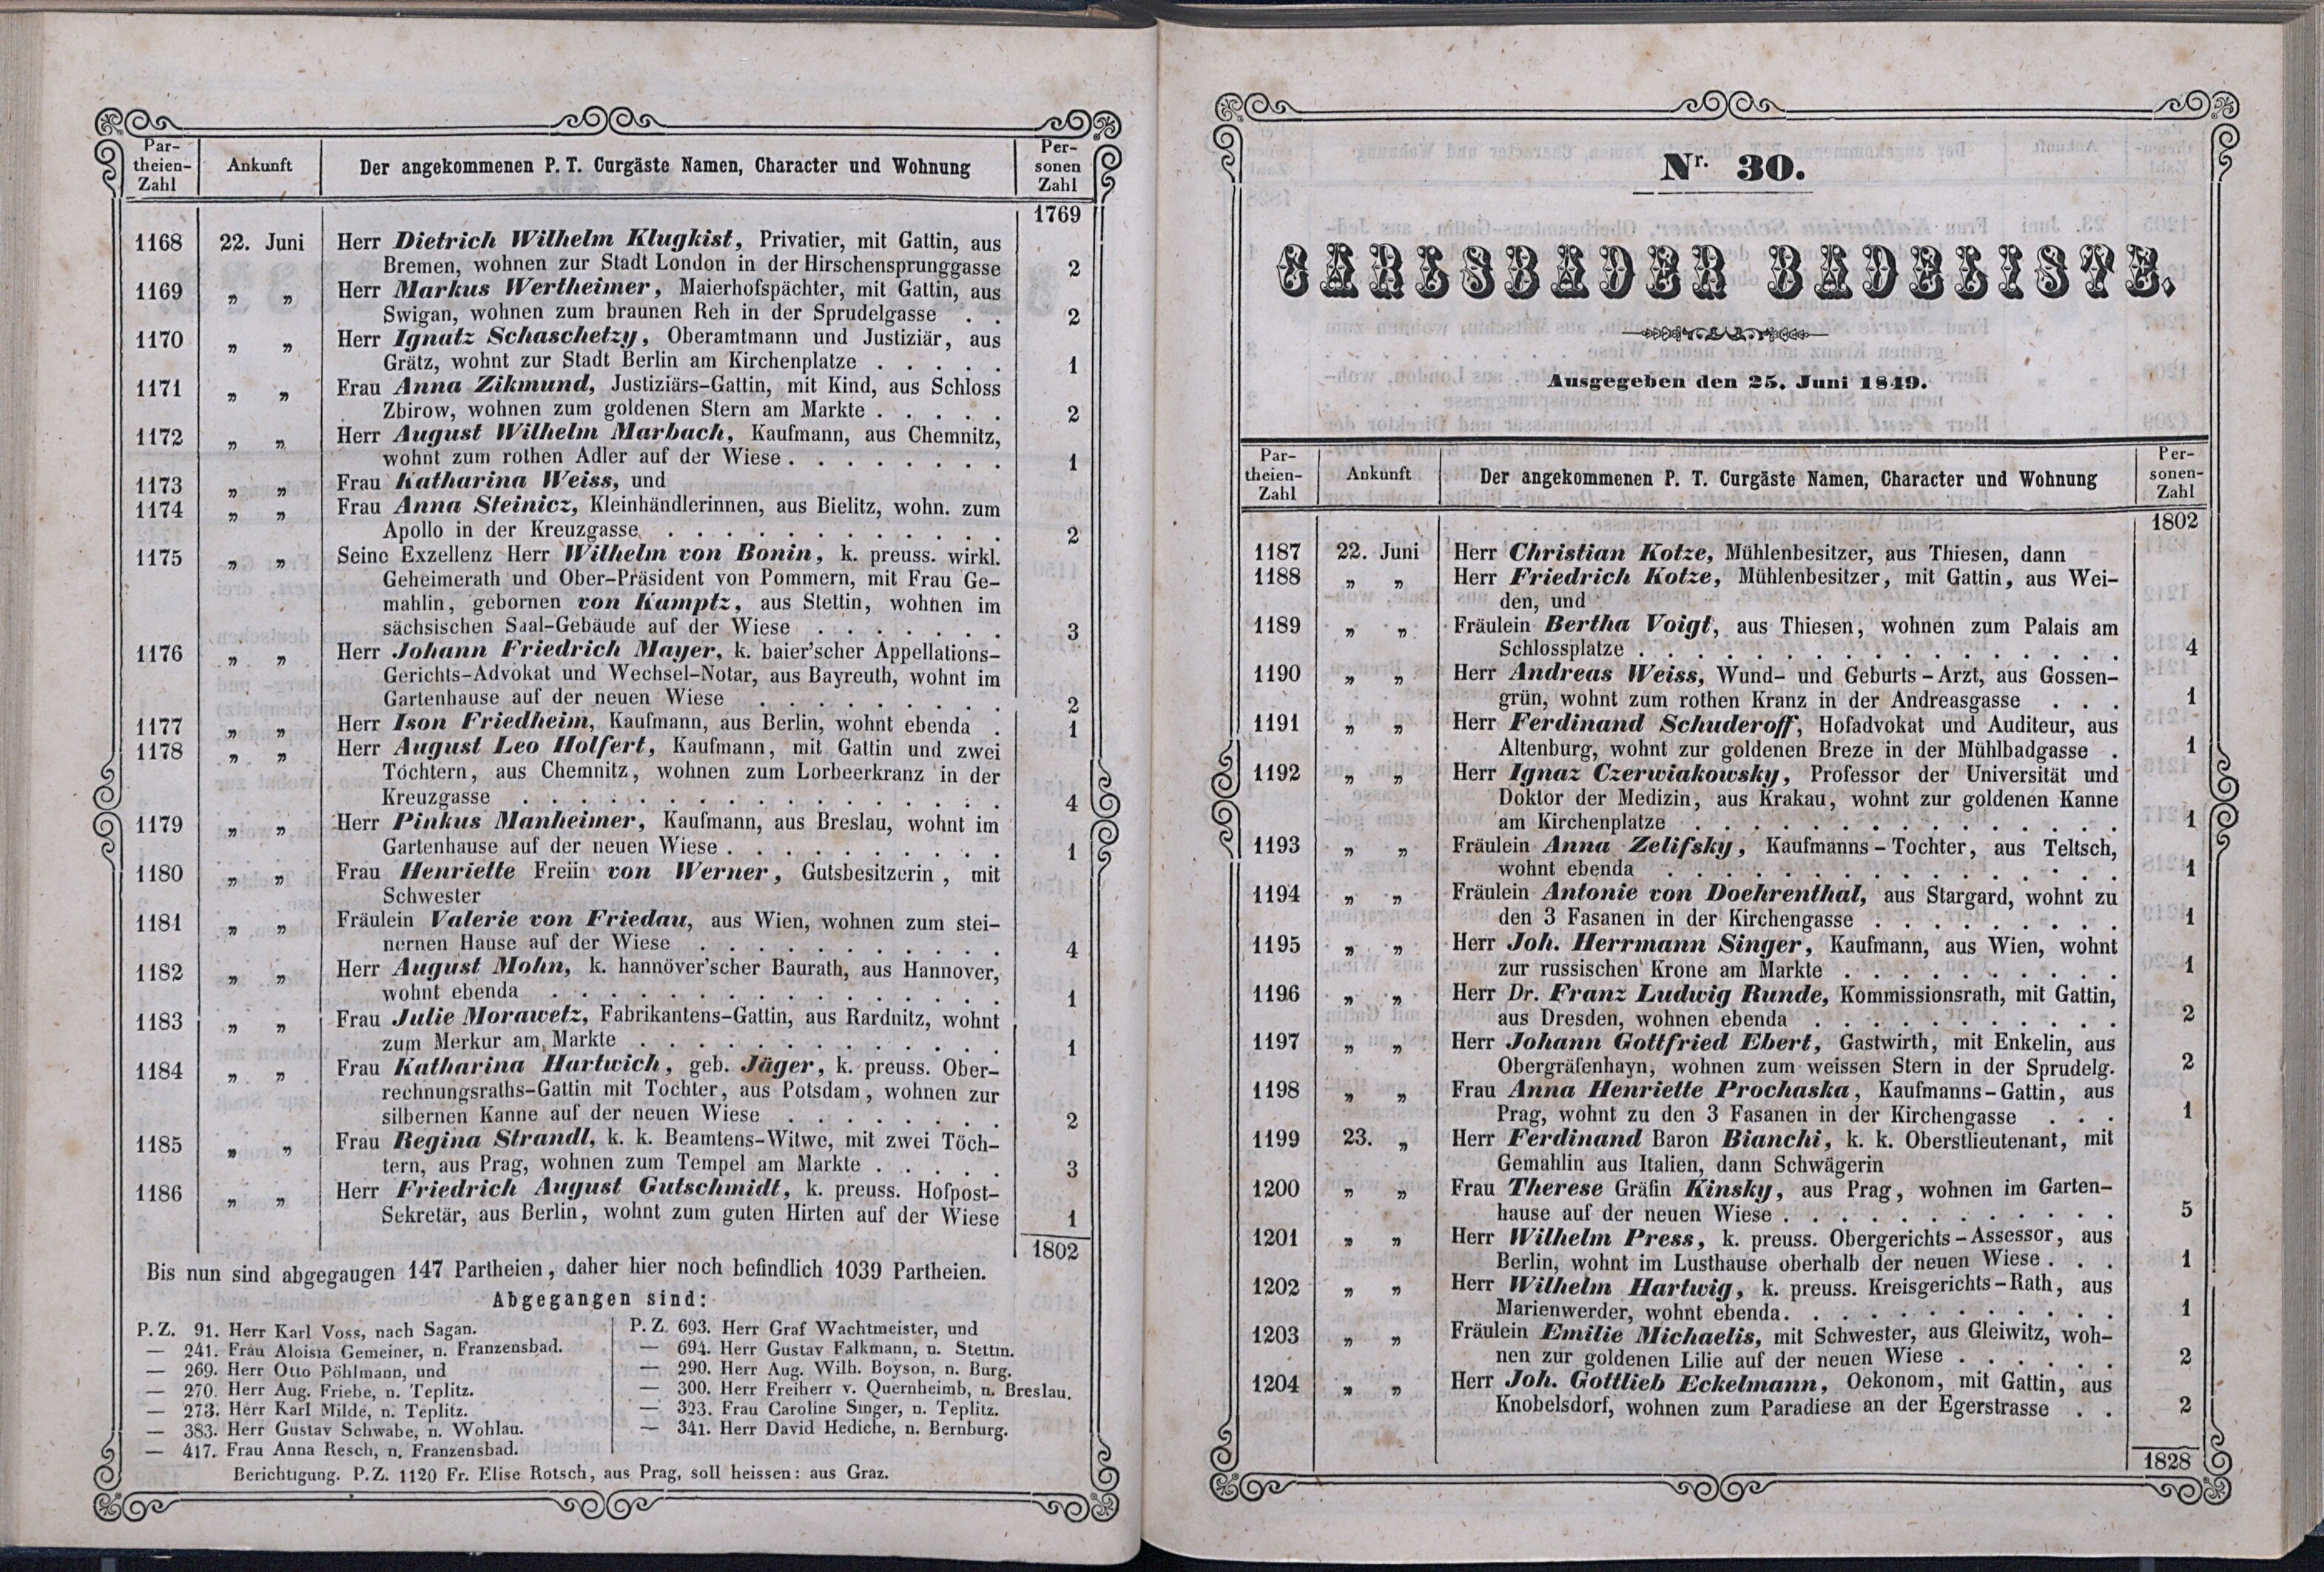 Par-
theien-
Zahl
Ankunft
Der angekommenen P. T. Curgäste Namen, Character und Wohnung
Per-
sonen
Zahl
1769
1168 22. Juni Herr Dietrich Wilhelm Klugkist, Privatier, mit Gattin, aus
Bremen, wohnen zur Stadt London in der Hirschensprunggasse 2
1169 „ „ Herr Markus Wertheimer, Maierhofspächter, mit Gattin, aus
Swigan, wohnen zum braunen Reh in der Sprudelgasse . . 2
1170 „ „ Herr Ignatz Schaschetzy, Oberamtmann und Justiziär, aus
Grätz, wohnt zur Stadt Berlin am Kirchenplatze . . . . . 1
1171 „ „ Frau Anna Zikmund, Justiziärs-Gattin, mit Kind, aus Schloss
Zbirow, wohnen zum goldenen Stern am Markte . . . . . 2
1172 „ „ Herr August Wilhelm Marbach, Kaufmann, aus Chemnitz,
wohnt zum rothen Adler auf der Wiese . . . . . . . . 1
1173 „ „ Frau Katharina Weiss, und
1174 „ „ Frau Anna Steinicz, Kleinhändlerinnen, aus Bielitz, wohn. zum
Apollo in der Kreuzgasse . . . . . . . . . . . . 2
1175 „ „ Seine Exzellenz Herr Wilhelm von Bonin, k. preuss. wirkl.
Geheimerath und Ober-Präsident von Pommern, mit Frau Ge-
mahlin, gebornen von Kamptz, aus Stettin, wohnen im
sächsischen Saal-Gebäude auf der Wiese . . . . . . . 3
1176 „ „ Herr Johann Friedrich Mayer, k. baier'scher Appellations-
Gerichts-Advokat und Wechsel-Notar, aus Bayreuth, wohnt im
Gartenhause auf der neuen Wiese . . . . . . . . . 2
1177 „ „ Herr Ison Friedheim, Kaufmann, aus Berlin, wohnt ebenda . 1
1178 „ „ Herr August Leo Holfert, Kaufmann, mit Gattin und zwei
Töchtern, aus Chemnitz, wohnen zum Lorbeerkranz in der
Kreuzgasse . . . . . . . . . . . . . . . . . 4
1179 „ „ Herr Pinkus Manheimer, Kaufmann, aus Breslau, wohnt im
Gartenhause auf der neuen Wiese . . . . . . . . . . 1
1180 „ „ Frau Henriette Freiin von Werner, Gutsbesitzerin, mit
Schwester
1181 „ „ Fräulein Valerie von Friedau, aus Wien, wohnen zum stei-
nernen Hause auf der Wiese . . . . . . . . . . . 4
1182 „ „ Herr August Mohn, k. hannöver'scher Baurath, aus Hannover,
wohnt ebenda . . . . . . . . . . . . . . . . 1
1183 „ „ Frau Julie Morawetz, Fabrikantens-Gattin, aus Rardnitz, wohnt
zum Merkur am Markte . . . . . . . . . . . . . 1
1184 „ „ Frau Katharina Hartwich, geb. Jäger, k. preuss. Ober-
rechnungsraths-Gattin mit Tochter, aus Potsdam, wohnen zur
silbernen Kanne auf der neuen Wiese . . . . . . . . 2
1185 „ „ Frau Regina Strandl, k. k. Beamtens-Witwe, mit zwei Töch-
tern, aus Prag, wohnen zum Tempel am Markte . . . . . 3
1186 „ „ Herr Friedrich August Gutschmidt, k. preuss. Hofpost-
Sekretär, aus Berlin, wohnt zum guten Hirten auf der Wiese 1
1802
Bis nun sind abgegaugen 147 Partheien, daher hier noch befindlich 1039 Partheien.
Abgegangen sind:
P. Z. 91. Herr Karl Voss, nach Sagan.
— 241. Frau Aloisia Gemeiner, n. Franzensbad.
— 269. Herr Otto Pöhlmann, und
— 270. Herr Aug. Friebe, n. Teplitz.
— 273. Herr Karl Milde, n. Teplitz.
— 383. Herr Gustav Schwabe, n. Wohlau.
— 417. Frau Anna Resch, n. Franzensbad.
P. Z. 693. Herr Graf Wachtmeister, und
— 694. Herr Gustav Falkmann, n. Stettin.
— 290. Herr Aug. Wilh. Boyson, n. Burg.
— 300. Herr Freiherr v. Quernheimb, n. Breslau.
— 323. Frau Caroline Singer, n. Teplitz.
— 341. Herr David Hediche, n. Bernburg.
Berichtigung. P. Z. 1120 Fr. Elise Rotsch, aus Prag, soll heissen: aus Graz.
Nr. 30.
CARLSBADER BADELISTE.
Ausgegeben den 25. Juni 1849.
Par-
theien-
Zahl
Ankunft
Der angekommenen P. T. Curgäste Namen, Character und Wohnung
Per-
sonen-
Zahl
1802
1187 22. Juni Herr Christian Kotze, Mühlenbesitzer, aus Thiesen, dann
1188 „ „ Herr Friedrich Kotze, Mühlenbesitzer, mit Gattin, aus Wei-
den, und
1189 „ „ Fräulein Bertha Voigt, aus Thiesen, wohnen zum Palais am
Schlossplatze . . . . . . . . . . . . . . . . . 4
1190 „ „ Herr Andreas Weiss, Wund- und Geburts-Arzt, aus Gossen-
grün, wohnt zum rothen Kranz in der Andreasgasse . . . 1
1191 „ „ Herr Ferdinand Schuderoff, Hofadvokat und Auditeur, aus
Altenburg, wohnt zur goldenen Breze in der Mühlbadgasse . 1
1192 „ „ Herr Ignaz Czerwiakowsky, Professor der Universität und
Doktor der Medizin, aus Krakau, wohnt zur goldenen Kanne
am Kirchenplatze . . . . . . . . . . . . . . . 1
1193 „ „ Fräulein Anna Zelifsky, Kaufmanns-Tochter, aus Teltsch,
wohnt ebenda . . . . . . . . . . . . . . . . 1
1194 „ „ Fräulein Antonie von Doehrenthal, aus Stargard, wohnt zu
den 3 Fasanen in der Kirchengasse . . . . . . . . . 1
1195 „ „ Herr Joh. Herrmann Singer, Kaufmann, aus Wien, wohnt
zur russischen Krone am Markte . . . . . . . . . . 1
1196 „ „ Herr Dr. Franz Ludwig Runde, Kommissionsrath, mit Gattin,
aus Dresden, wohnen ebenda . . . . . . . . . . . 2
1197 „ „ Herr Johann Gottfried Ebert, Gastwirth, mit Enkelin, aus
Obergräfenhayn, wohnen zum weissen Stern in der Sprudelg. 2
1198 „ „ Frau Anna Henriette Prochaska, Kaufmanns-Gattin, aus
Prag, wohnt zu den 3 Fasanen in der Kirchengasse . . . 1
1199 23. „ Herr Ferdinand Baron Bianchi, k. k. Oberstlieutenant, mit
Gemahlin aus Italien, dann Schwägerin
1200 „ „ Frau Therese Gräfin Kinsky, aus Prag, wohnen im Garten-
hause auf der neuen Wiese . . . . . . . . . . . . 5
1201 „ „ Herr Wilhelm Press, k. preuss. Obergerichts-Assessor, aus
Berlin, wohnt im Lusthause oberhalb der neuen Wiese . . . 1
1202 „ „ Herr Wilhelm Hartwig, k. preuss. Kreisgerichts-Rath, aus
Marienwerder, wohnt ebenda . . . . . . . . . . . . 1
1203 „ „ Fräulein Emilie Michaelis, mit Schwester, aus Gleiwitz, woh-
nen zur goldenen Lilie auf der neuen Wiese . . . . . . 2
1204 „ „ Herr Joh. Gottlieb Eckelmann, Oekonom, mit Gattin, aus
Knobelsdorf, wohnen zum Paradiese an der Egerstrasse . . 2
1828